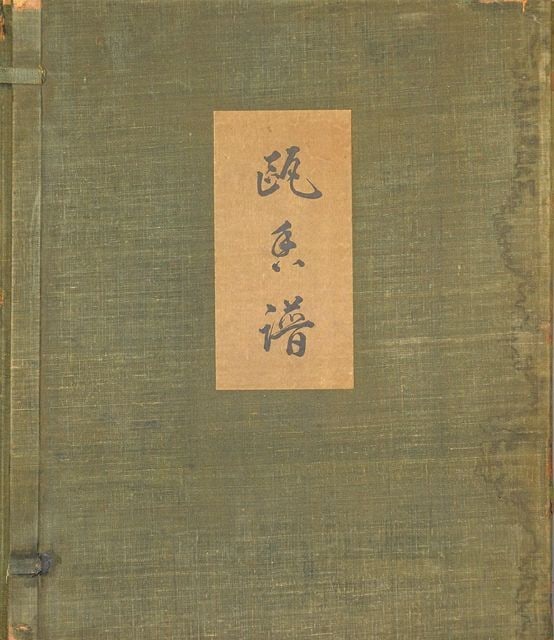 甌香譜